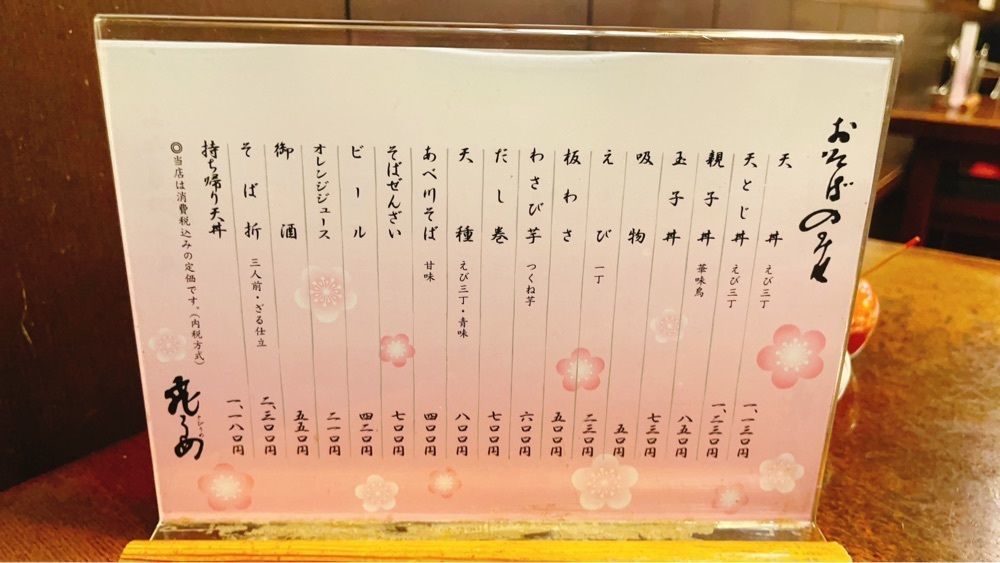 おそばの
天丼 えび三丁 一、一三〇円
天とじ丼 えび三丁 一、二三〇円
親子丼 華味鳥 八五〇円
玉子丼 七三〇円
吸物 五〇円
えび 一丁 二三〇円
板わさ 五〇〇円
わさび芋 つくね芋 六〇〇円
だし巻 七〇〇円
天種 えび三丁・青味 八〇〇円
あべ川そば 甘味 四〇〇円
そばぜんざい 七〇〇円
ビール 四二〇円
オレンジジュース 二一〇円
御酒 五五〇円
そば折 三人前・ざる仕立 二、三〇〇円
持ち帰り天丼 一、一八〇円
◎当店は消費税込みの定価です。(内税方式)
飛うめ
とびうめ